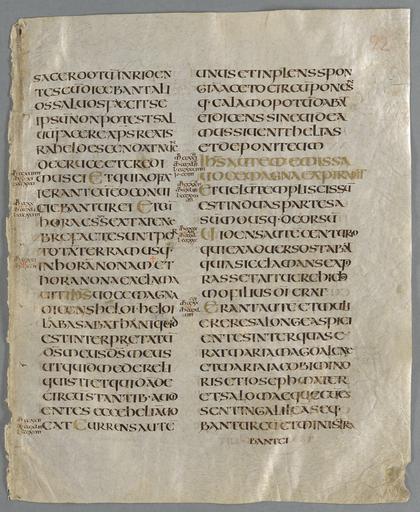 92
SACERDOTŪ INRIDEN
TES EŪ DICEBANT ALI
OS SALUOS FECIT SE
IPSUM NON POTEST SAL
UŪ FACERE XPS REX IS
RAHEL DESCENDAT NUNC
DE CRUCE ET CREDI
MUS EI ET QUI
IERANT CŪ EO CONUI
CIEBANTUR EI ET CŪ
HORA ESS SEXTA TENE
BRE FACTE SUNT PER
TOTĀ TERRA USQ·
IN HORA NONAM ET
HORA NONA EXCLAMA
UIT IHS UOCE MAGNA
DICENS HELOI HELOI
LABASABATHANI QUOD
EST INTERPRETATŪ
DS MEUS DS MEUS
UT QUID ME DERELI
QUISTI ET QUI
CIRCUSTANTIB· AUDI
ENTES ECCE HELIA UO
CAT CURRENS AUTE
UNUS ET INPLENS SPON
GIA ACETO CIRCUPONENS
Q· CALAMO POTŪ DABAT
EI DICENS SINE UIDEA
MUS SI UENIT HELIAS
ET DEPONIT EUM
IHS AUTEM EMISSA
UOCE MAGNA EXPIRAUIT
ET UELŪ TEMPLI SCISSŪ
EST IN DUAS PARTES A
SUMO USQ· DEORSŪ
UIDENS AUTE CENTURIO
QUI EX ADUERSO STABAT
QUIA SIC CLAMANS EXPI
RASSET AIT UERE HIC HO
MO FILIUS DI ERAT
ERANT AUTE ET MULI
ERES A LONGE ASPICI
ENTES INTER QUAS E
RAT MARIA MAGDALENE
ET MARIA IACOBI MINO
RIS ET IOSEPH MATER
ET SALOMAE
SENT IN GALILEA SEQ·
BANTUR EŪ ET MINISTRA
BANT EI